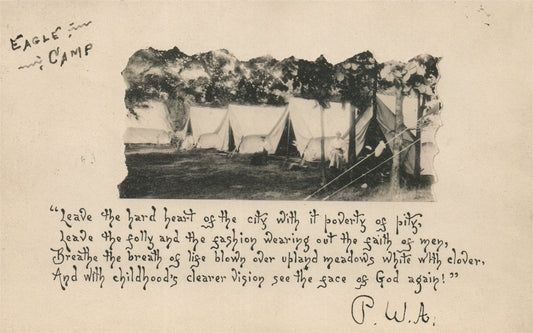 EAGLE
CAMP
"Leave the hard heart of the city with it poverty of pity,
Leave the folly and the fashion wearing out the faith of men,
Breathe the breath of life blown over upland meadows white with clover,
And with childhood's clearer vision see the face of God again!"
P. W. A.